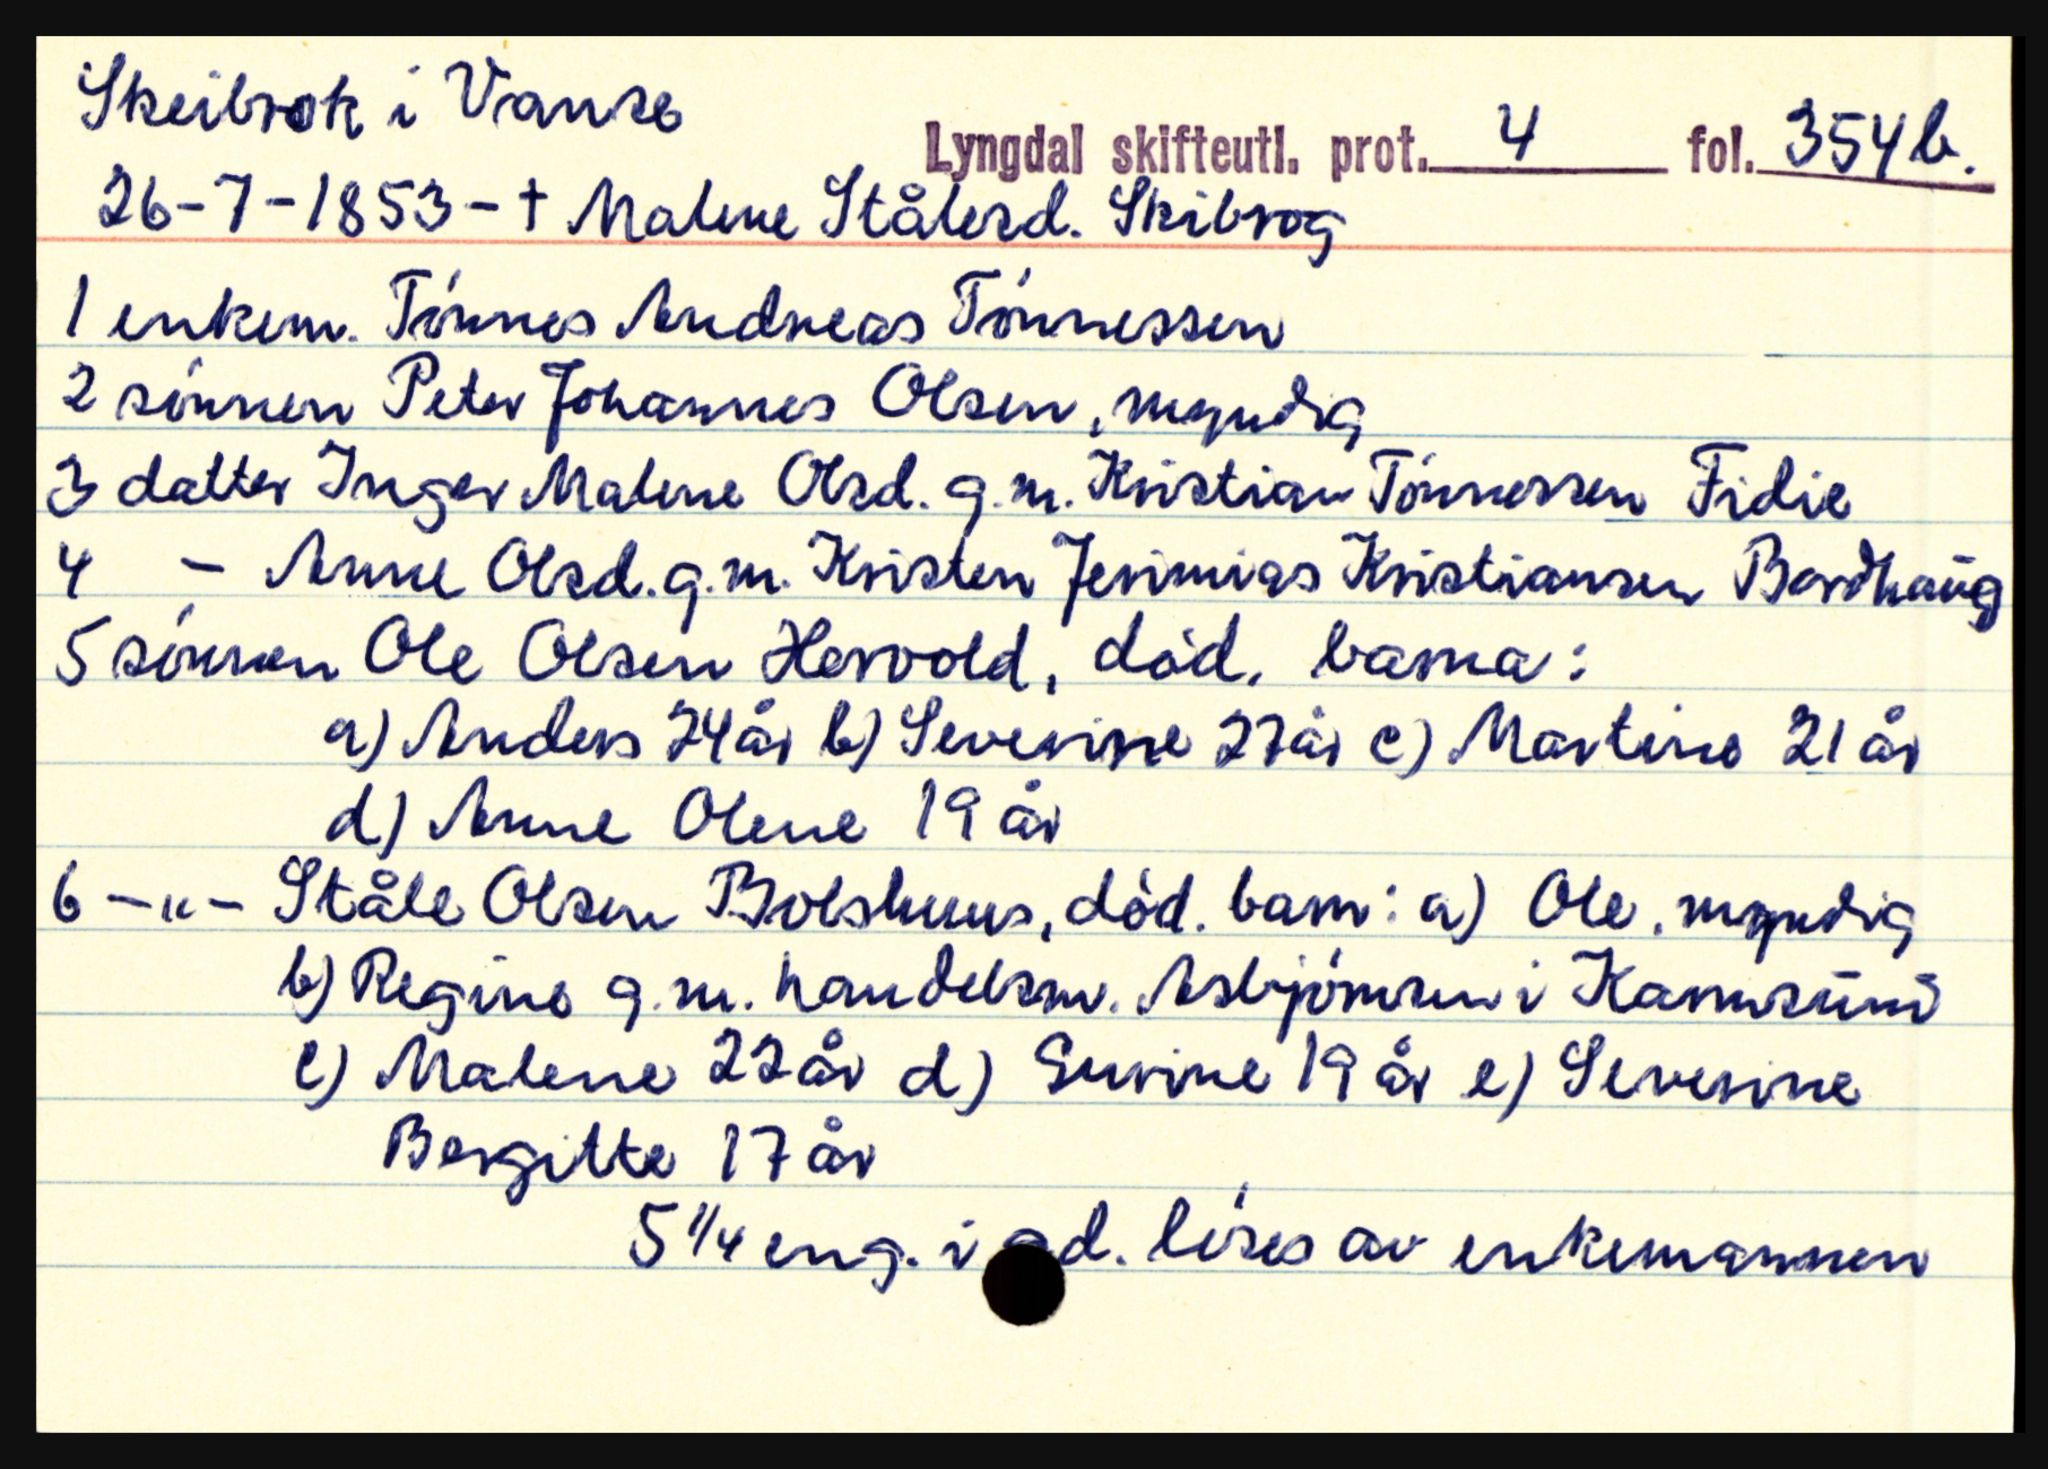 Skeibrok i Vanse
Lyngdal skifteutl. prot. 4 fol. 354b.
26-7-1853 - † Malene Stålesd. Skibrog
1 enkem. Tónnes Andreas Tónnessen
2 sónnen Peter Johannes Olsen, myndig
3 datter Inger Malene Olsd. g.m. Kristian Tónnessen Fidie
4 - Anne Olsd. g.m. Kristen Jerimias Kristiansen Bordhaug
5 sónnen Ole Olsen Hervold, dód, barna:
a) Anders 24 år b) Severine 27 år c) Martine 21 år
d) Anne Olene 19 år
6 -"- Ståle Olsen Bolshuus, dód. barn: a) Ole, myndig
b) Regine g.m. handelsm. Asbjórnsen i Karmsund
c) Malene 22 år d) Surine 19 år e) Severine
Bergitte 17 år
5 1/4 eng. i gd. lóses av enkemannen